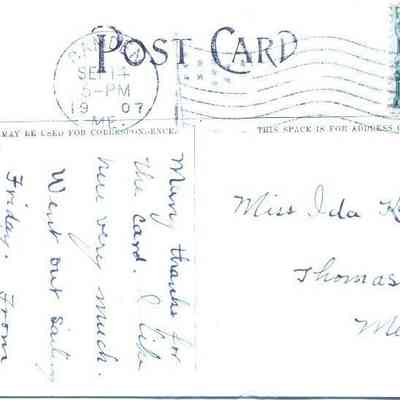 POST CARD
SEP 14
5-PM
1907
ME.
MAY BE USED FOR CORRESPONDENCE.
THIS SPACE IS FOR ADDRESS
Many thanks for
the card. I like
here very much.
Went out sailing
Friday. From
Miss Ida K
Thomas
Me